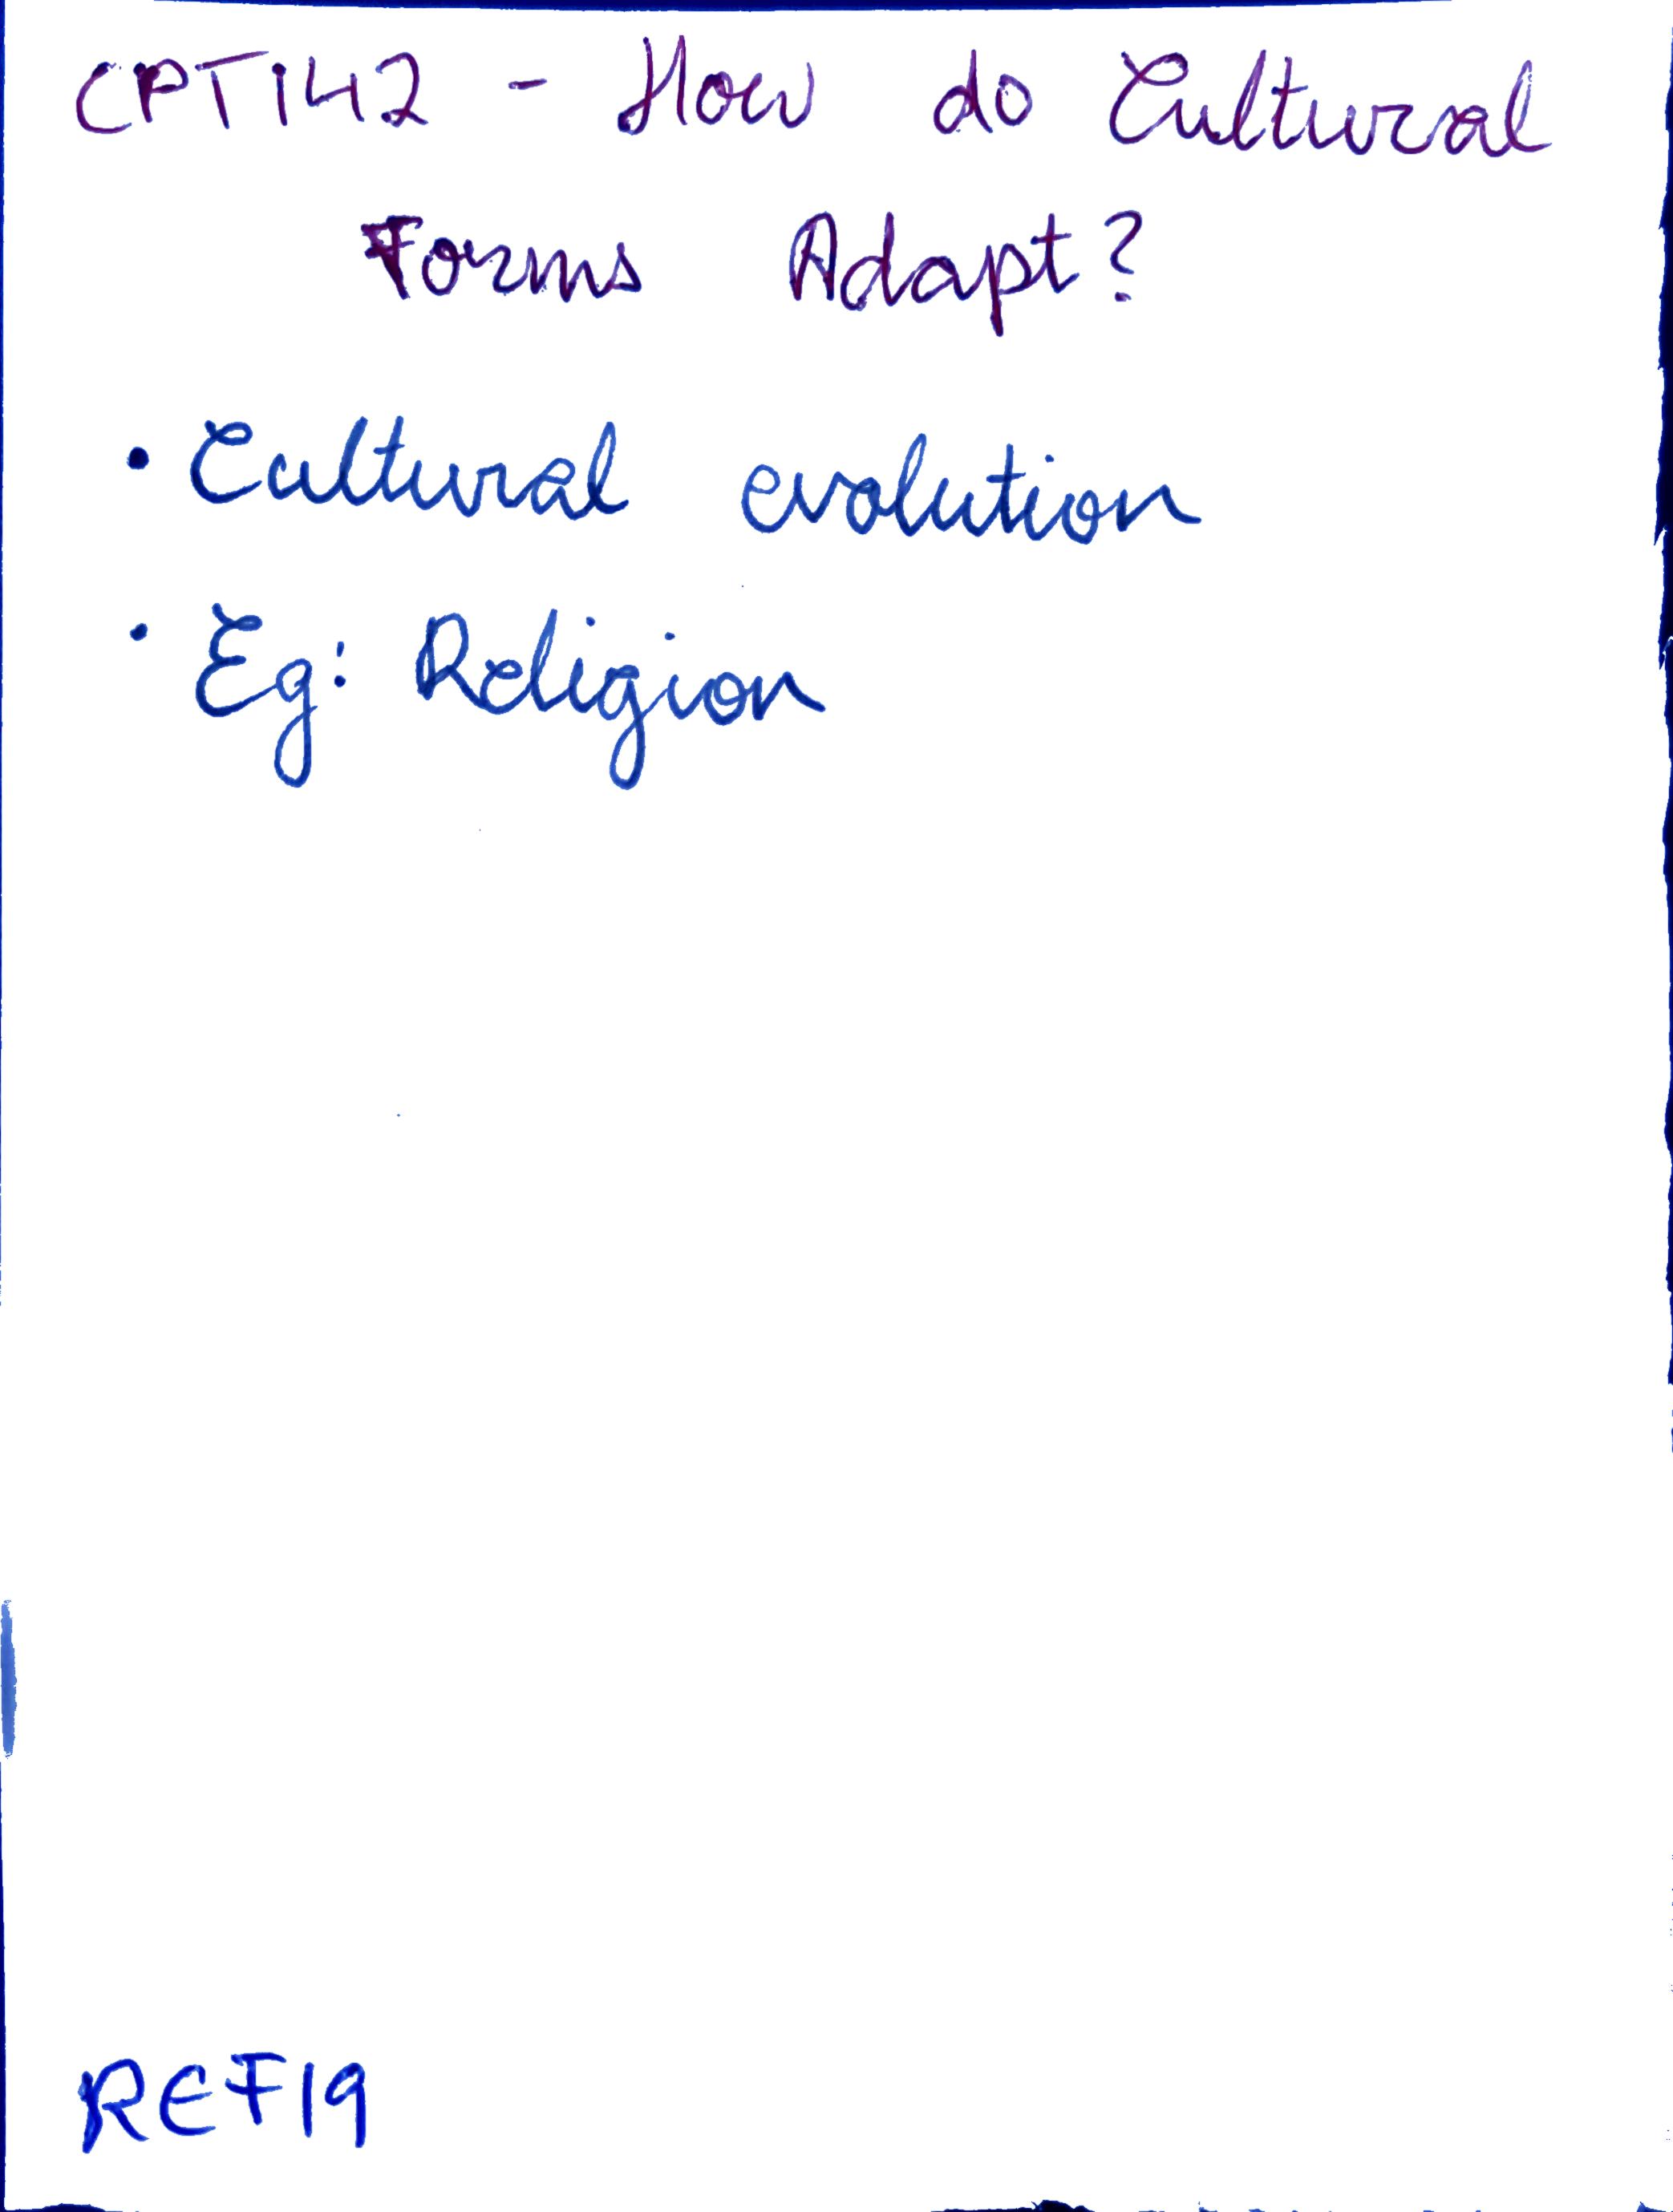 CPT142 - How do Cultural
Forms Adapt?
• Cultural evolution
• Eg: Religion
REF19